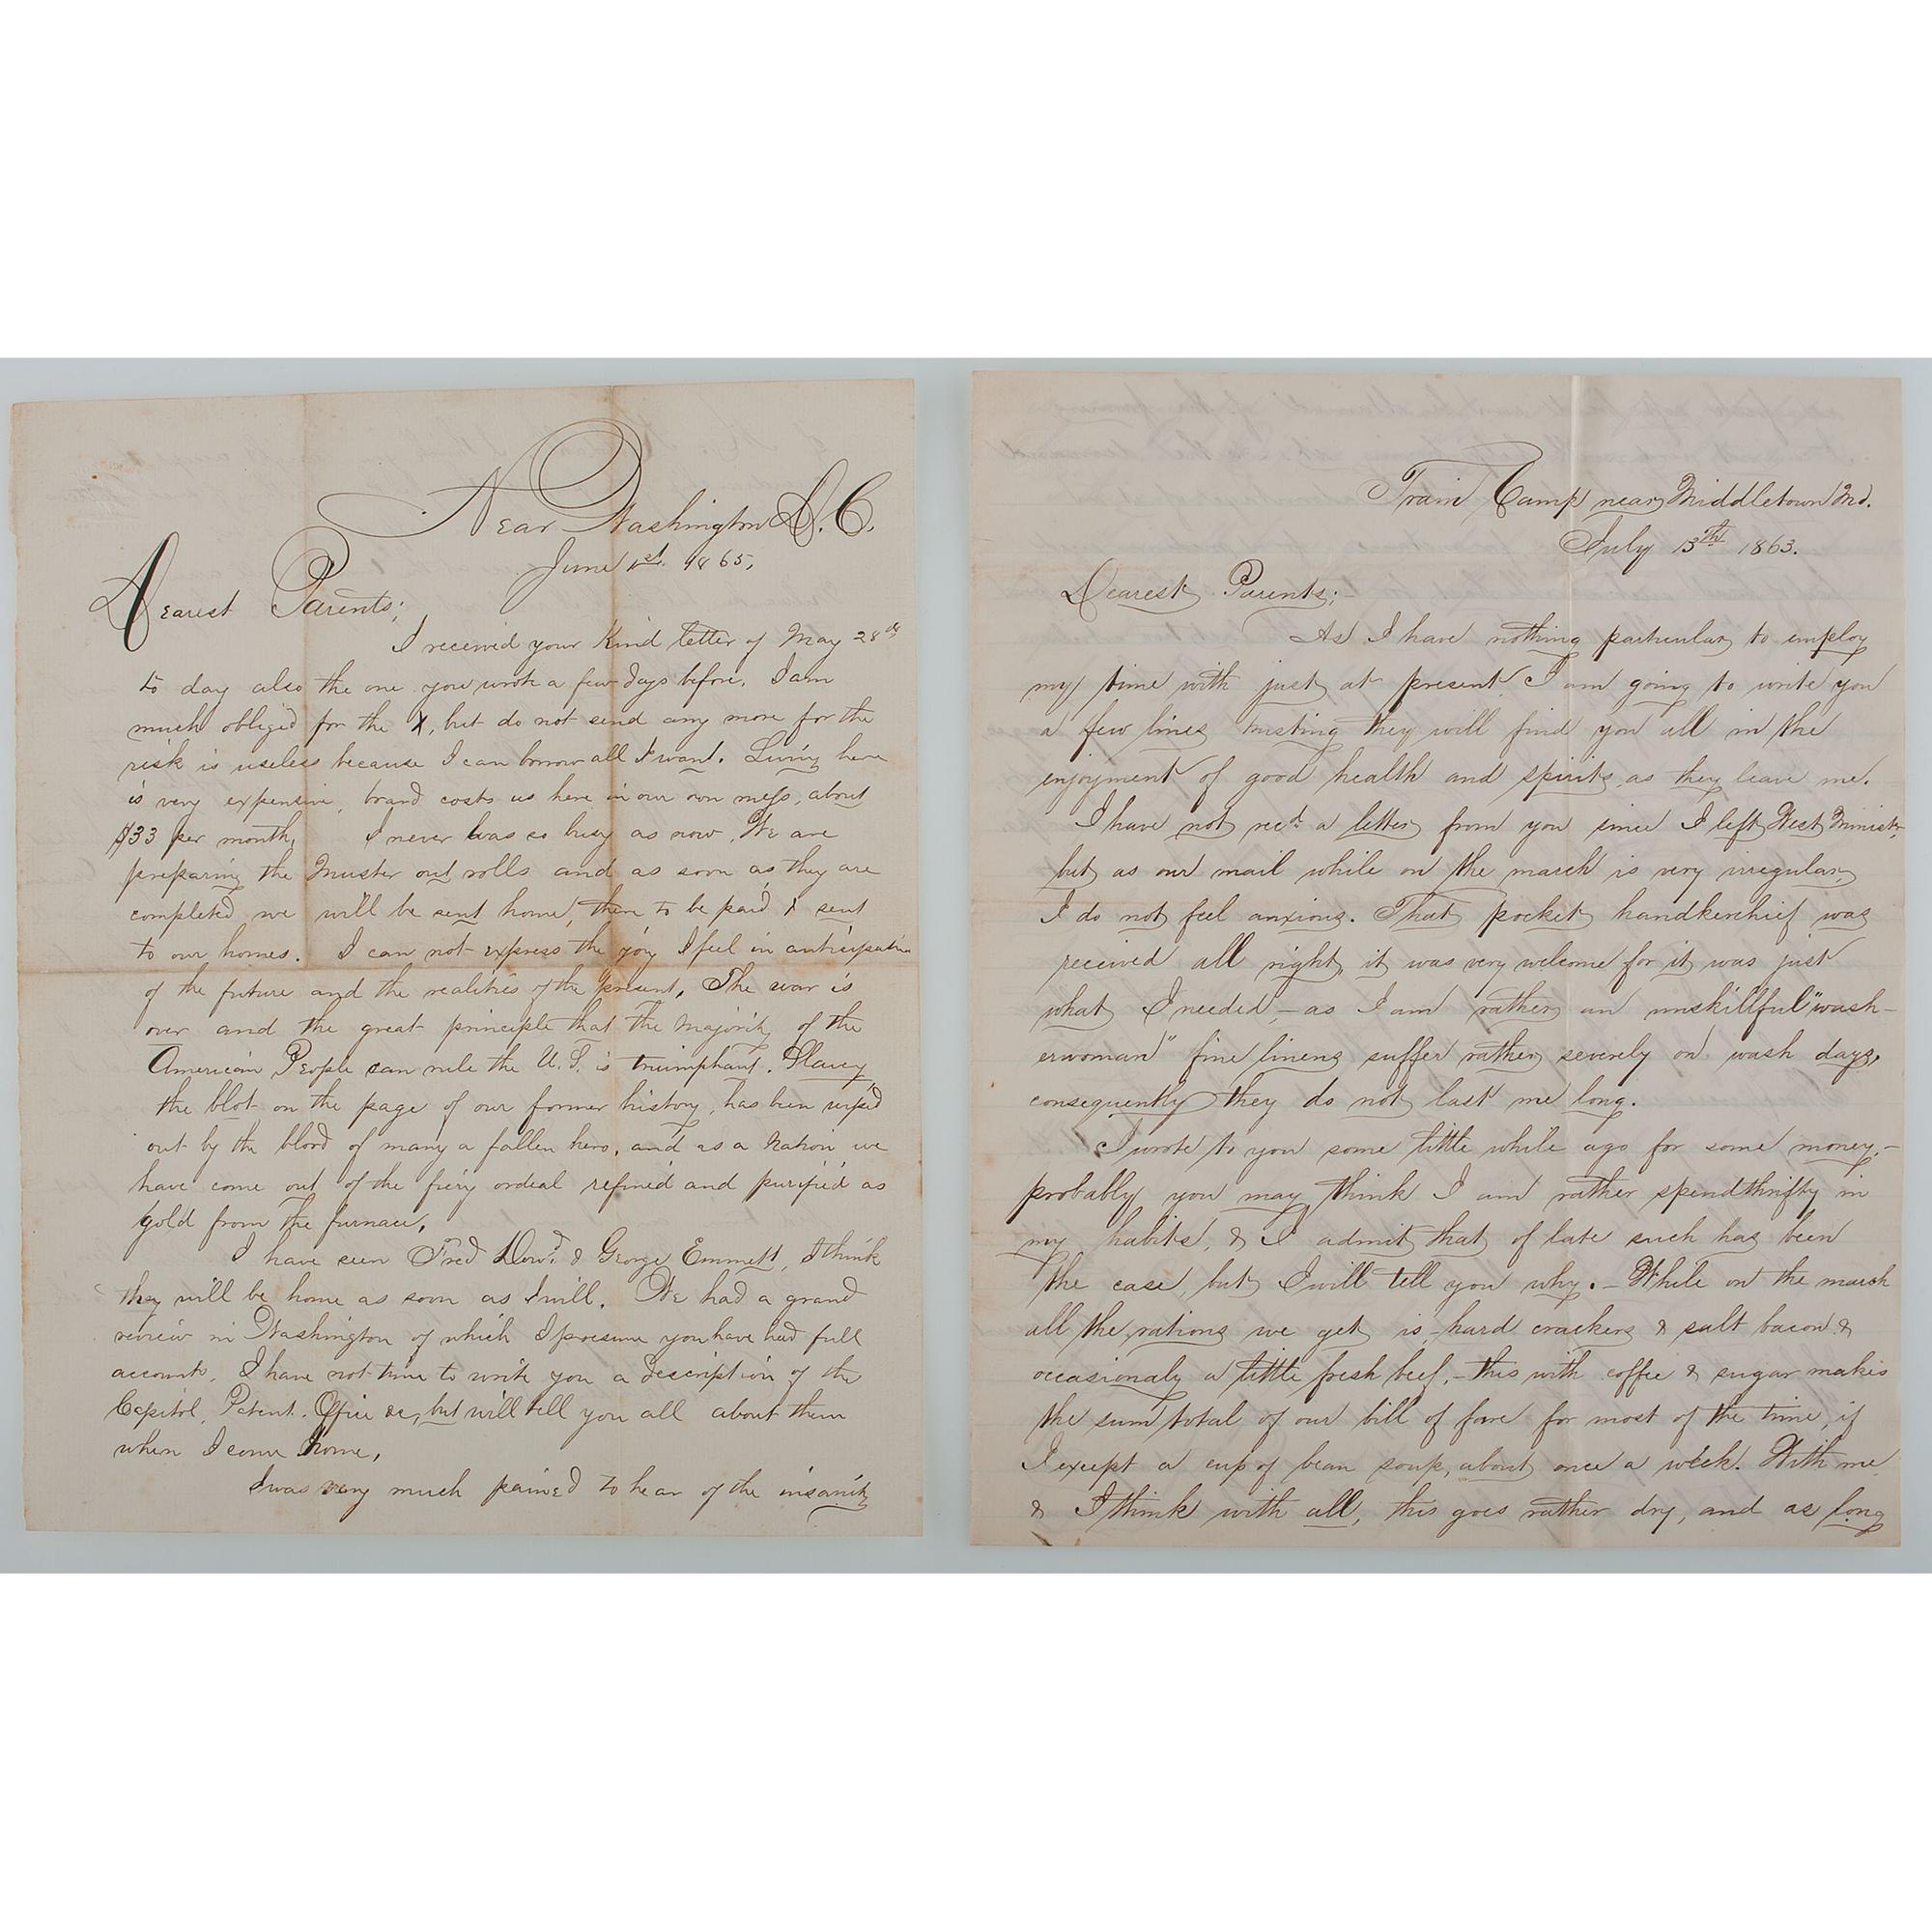 Near Washington D.C.
June 1st 1865,
Dearest Parents;
I received your Kind letter of May 28th
to day also the one you wrote a few days before. I am
much obliged for the X, but do not send any more for the
risk is useless because I can borrow all I want. Living here
is very expensive, board costs us here in our own mess, about
$33 per month, I never was so busy as now, We are
preparing the Muster out rolls and as soon as they are
completed we will be sent home, there to be paid & sent
to our homes. I can not express the joy I feel in anticipation
of the future and the realities of the present. The war is
over and the great principle that the Majority of the
American People can rule the U.S. is triumphant. Slavery
the blot on the page of our former history, has been wiped
out by the blood of many a fallen hero, and as a Nation we
have come out of the fiery ordeal refined and purified as
gold from the furnace,
I have seen Fred & George Emmett, I think
they will be home as soon as I will. We had a grand
review in Washington of which I presume you have had full
accounts. I have not time to write you a description of the
Capitol, Patent Office &c, but will tell you all about them
when I come home,
I was very much pained to hear of the insanity
Train Camp near Middletown Md.
July 13th 1863.
Dearest Parents;-
As I have nothing particular to employ
my time with just at present I am going to write you
a few lines trusting they will find you all in the
enjoyment of good health and spirits, as they leave me.
I have not recd a letter from you since I left West Minister,
but as our mail while on the march is very irregular,
I do not feel anxious. That pocket handkerchief was
received all right, it was very welcome for it was just
what I needed,- as I am rather an unskillful "wash-
erwoman" fine linens suffer rather severely on wash days,
consequently they do not last me long.
I wrote to you some little while ago for some money,-
probably you may think I am rather spendthrifty in
my habits, & I admit that of late such has been
the case, but I will tell you why.- While on the march
all the rations we get is,-hard crackers & salt bacon &
occasionaly a little fresh beef,-this with coffee & sugar makes
the sum total of our bill of fare for most of the time, if
I except a cup of bean soup, about once a week. With me
& I think with all, this goes rather dry, and as long